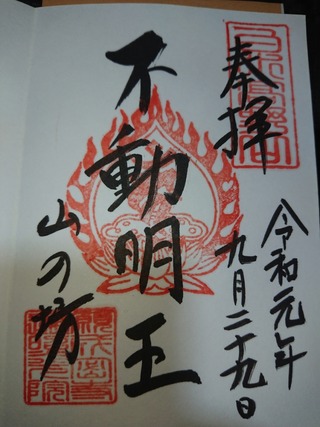 奉拝
令和元年
九月二十九日
不動明王
山の坊